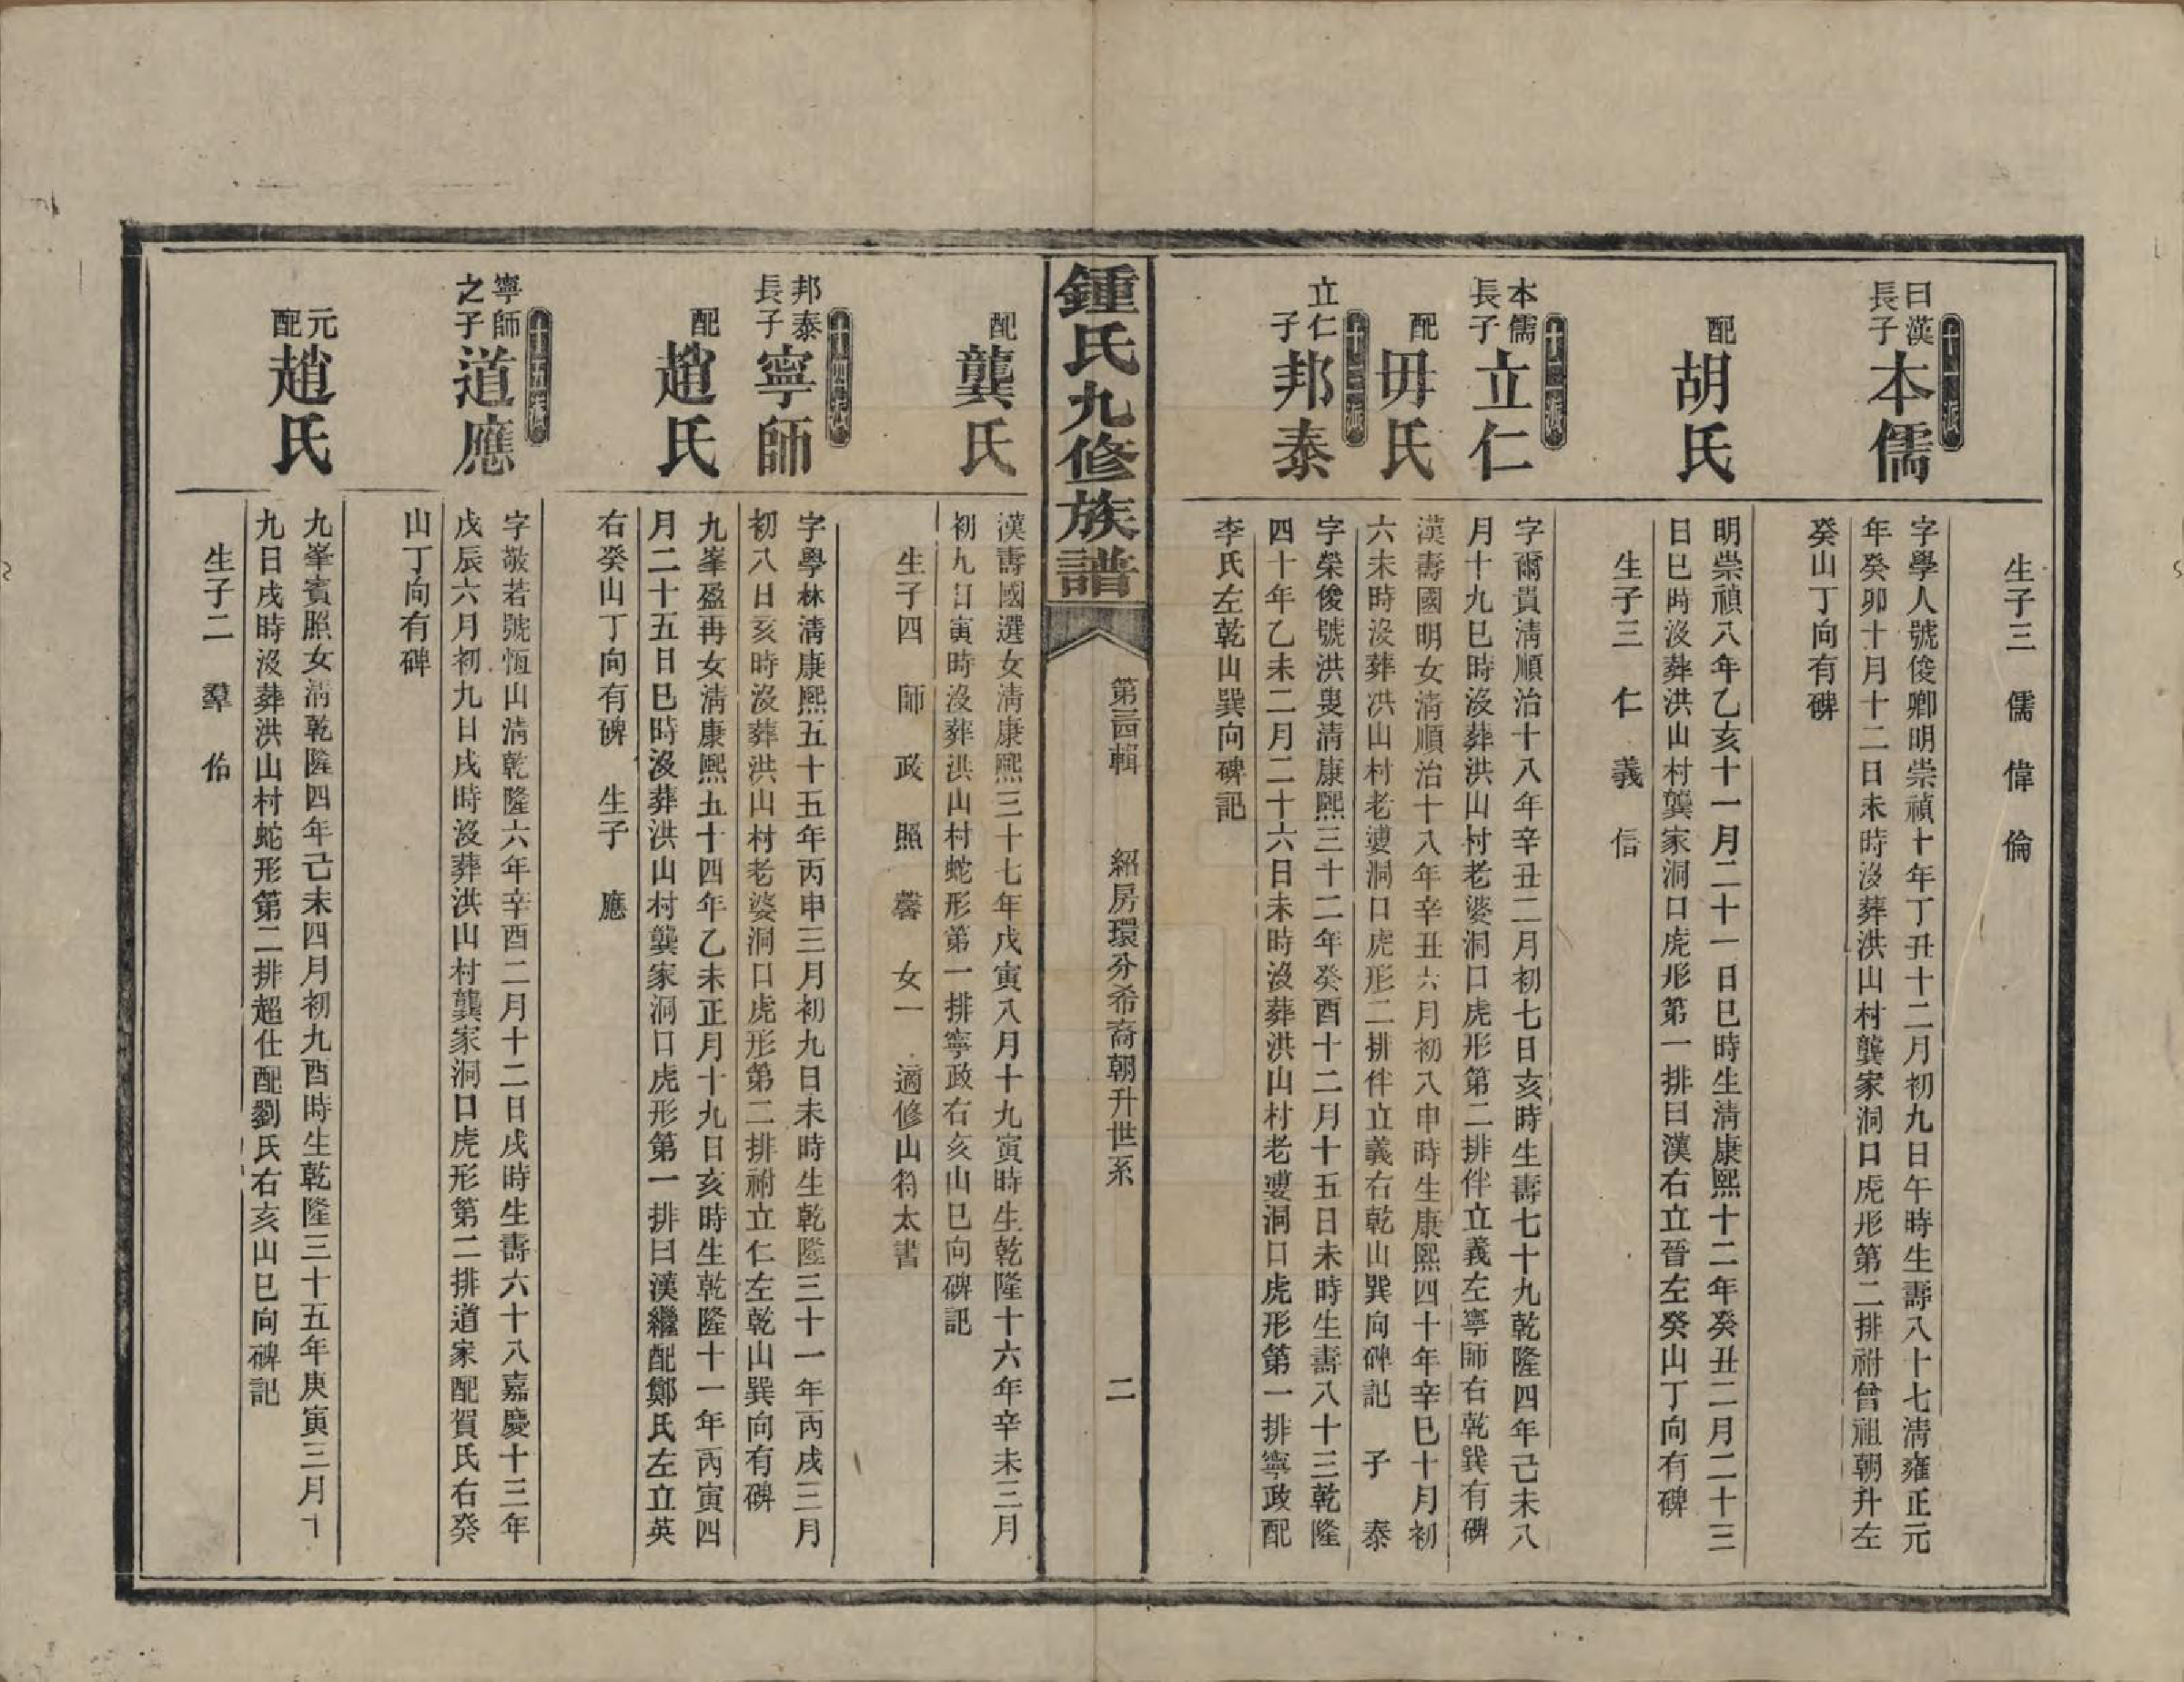 生子三　儒　偉　倫
十一派
曰漢長子
本儒
字學人號俊卿明崇禎十年丁丑十二月初九日午時生壽八十七淸雍正元
年癸卯十月十二日未時沒葬洪山村龔家洞口虎形第二排祔曾祖朝升左
癸山丁向有碑
配
胡氏
明崇禎八年乙亥十一月二十一日巳時生淸康熙十二年癸丑二月二十三
日巳時沒葬洪山村龔家洞口虎形第一排曰漢右立晉左癸山丁向有碑
生子三　仁　義　信
十二派
本儒長子
立仁
字爾貴淸順治十八年辛丑二月初七日亥時生壽七十九乾隆四年己未八
月十九巳時沒葬洪山村老婆洞口虎形第二排伴立義左寧師右乾巽有碑
配
毋氏
漢壽國明女淸順治十八年辛丑六月初八申時生康熙四十年辛巳十月初
六未時沒葬洪山村老婆洞口虎形二排伴立義右乾山巽向碑記　子　泰
十三派
立仁子
邦泰
字榮俊號洪叟淸康熙三十二年癸酉十二月十五日未時生壽八十三乾隆
四十年乙未二月二十六日未時沒葬洪山村老婆洞口虎形第一排寧政配
李氏左乾山巽向碑記
鍾氏九修族譜
第三四輯　紹房環分希裔朝升世系
二
配
龔氏
漢壽國選女淸康熙三十七年戊寅八月十九寅時生乾隆十六年辛未三月
初九日寅時沒葬洪山村蛇形第一排寧政右亥山巳向碑記
生子四　師　政　照　馨　女一　適修山符太書
十四派
邦泰長子
寧師
字學林淸康熙五十五年丙申三月初九日未時生乾隆三十一年丙戌三月
初八日亥時沒葬洪山村老婆洞口虎形第二排祔立仁左乾山巽向有碑
配
趙氏
九峯盈再女淸康熙五十四年乙未正月十九日亥時生乾隆十一年丙寅四
月二十五日巳時沒葬洪山村龔家洞口虎形第一排曰漢繼配鄭氏左立英
右癸山丁向有碑　生子　應
十五派
寧師之子
道應
字敬若號恆山淸乾隆六年辛酉二月十二日戌時生壽六十八嘉慶十三年
戊辰六月初九日戌時沒葬洪山村龔家洞口虎形第二排道家配賀氏右癸
山丁向有碑
元配
趙氏
九峯賓照女淸乾隆四年己未四月初九酉時生乾隆三十五年庚寅三月十
九日戌時沒葬洪山村蛇形第二排超仕配劉氏右亥山巳向碑記
生子二　羣　佑